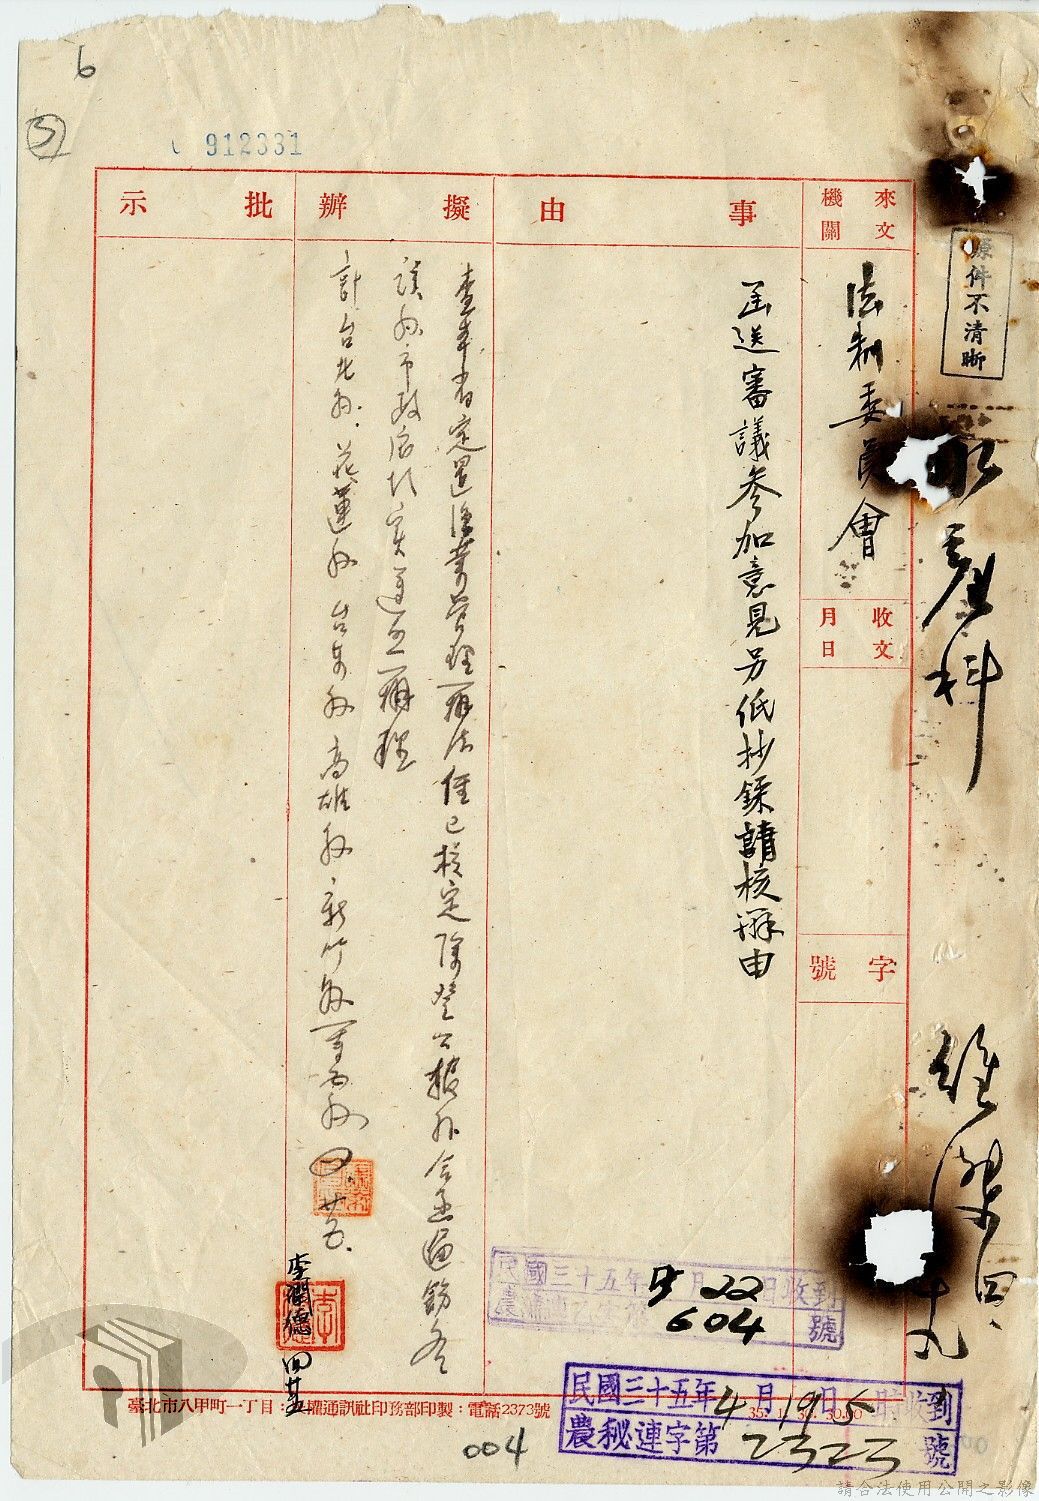 6
5
912331
來文機關
法制委員會
事由
函送審議參加意見另低抄錄請核辦由
收文
月日
字號
擬辦
查本省定置漁業管理辦法 已核定除登公報外令函通飭各
該縣市政府 遵照辦理
計台北縣.花蓮縣 台東縣 高雄縣 新竹縣
四.廿五.
李潤德 四廿五
批示
原件不清晰
產科
維
四.十九
民國三十五年 月22日收到
604 號
民國三十五年4月19日5時收到
農秘連字第2323號
臺北市八甲町一丁目: 權通訊社印務部印製:電話2373號
35. 1. 30.00
004
請合法使用公開之影像